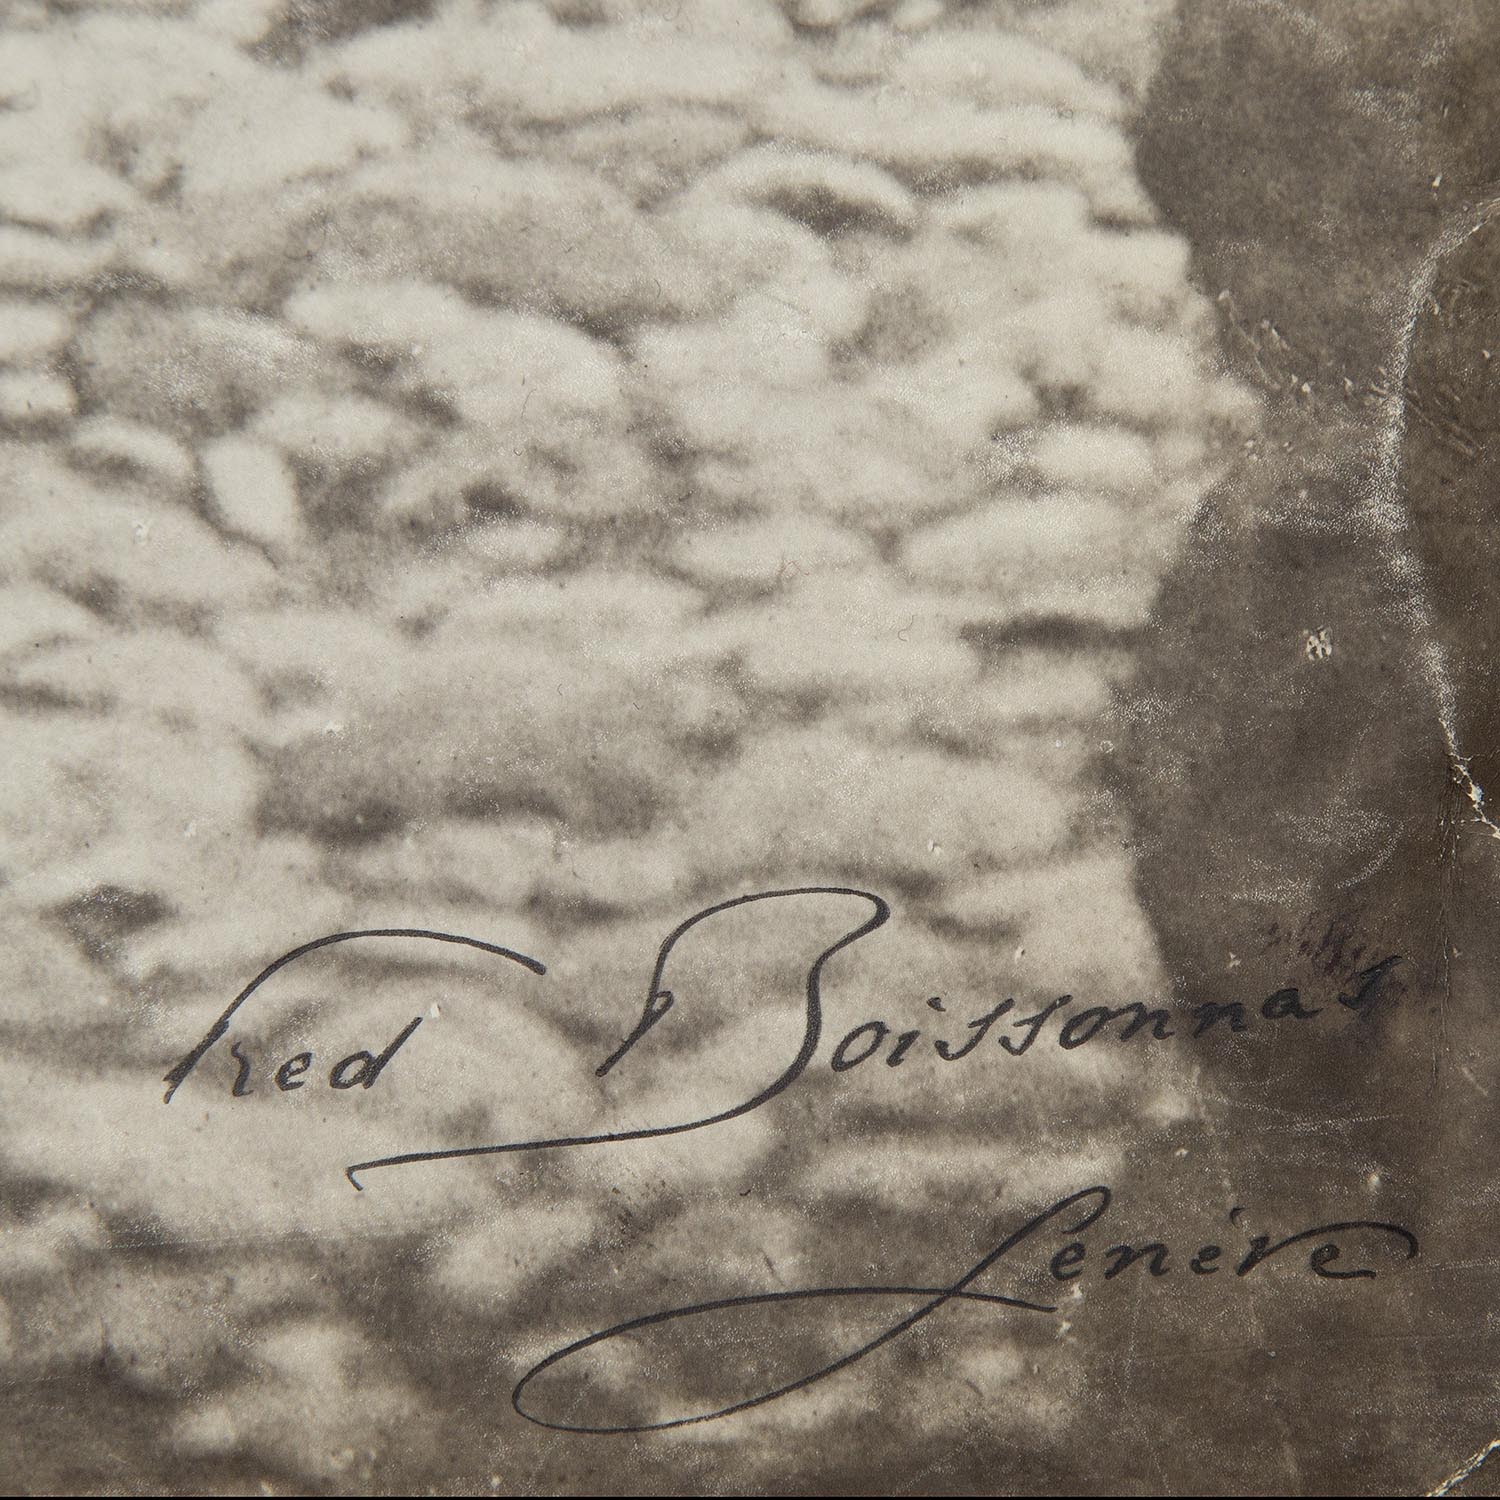 Fred Boissonnas
Genève